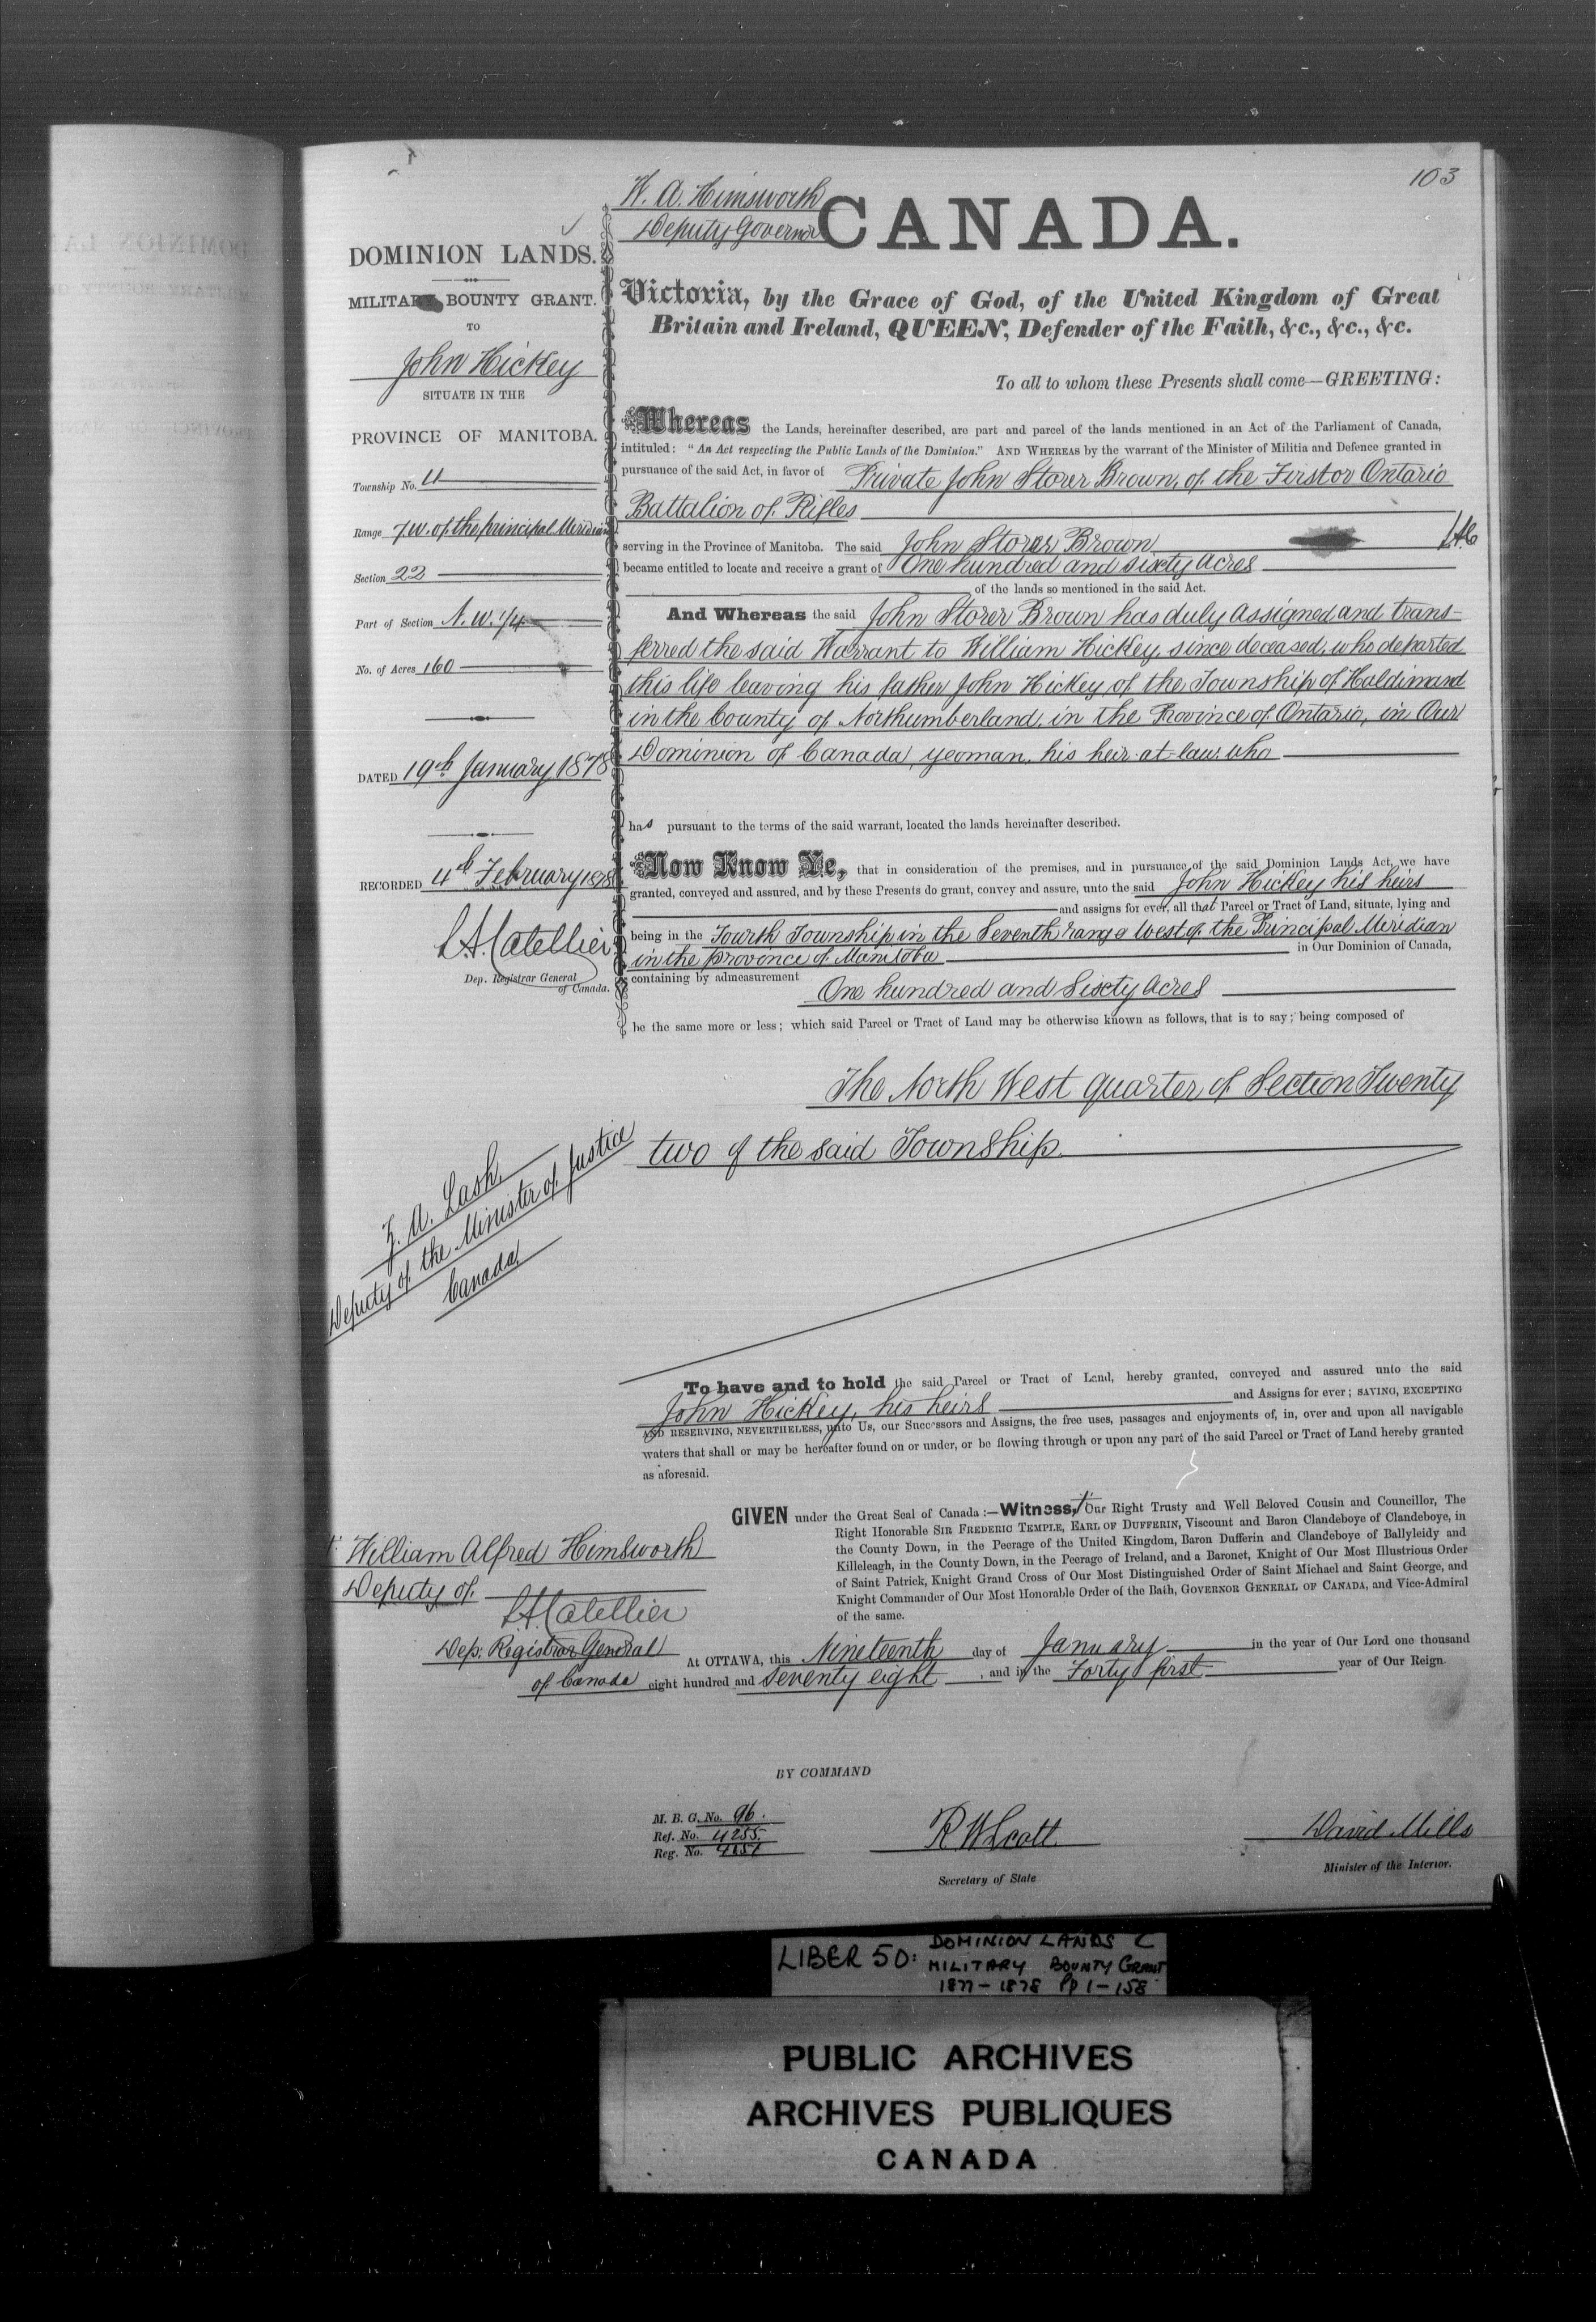 103
W. A. Himsworth
Deputy Governor
CANADA.
DOMINION LANDS.
MILITARY BOUNTY GRANT.
TO
John Hickey
SITUATE IN THE
PROVINCE OF MANITOBA.
Township No. 4
Range 7.W. of the principal Meridian
Section 22
Part of Section N.W. 1/4
No. of Acres 160
DATED 19th January 1878
RECORDED 4th February 1878
L.A. Catellier
Dep. Registrar General
of Canada.
Victoria, by the Grace of God, of the United Kingdom of Great
Britain and Ireland, QUEEN, Defender of the Faith, &c., &c., &c.
To all to whom these Presents shall come—GREETING:
Whereas the Lands, hereinafter described, are part and parcel of the lands mentioned in an Act of the Parliament of Canada,
intituled: "An Act respecting the Public Lands of the Dominion." AND WHEREAS by the warrant of the Minister of Militia and Defence granted in
pursuance of the said Act, in favor of Private John Storer Brown, of the First or Ontario
Battalion of Rifles
serving in the Province of Manitoba. The said John Storer Brown
became entitled to locate and receive a grant of One hundred and sixty acres
of the lands so mentioned in the said Act.
And Whereas the said John Storer Brown has duly assigned and trans-
ferred the said Warrant to William Hickey since deceased, who departed
this life leaving his father John Hickey of the Township of Haldimand
in the County of Northumberland, in the Province of Ontario, in Our
Dominion of Canada, yeoman, his heir-at-law who
has pursuant to the terms of the said warrant, located the lands hereinafter described.
Now Know Ye, that in consideration of the premises, and in pursuance of the said Dominion Lands Act, we have
granted, conveyed and assured, and by these Presents do grant, convey and assure, unto the said John Hickey his heirs
and assigns for ever, all that Parcel or Tract of Land, situate, lying and
being in the Fourth Township in the Seventh range West of the Principal Meridian
in the province of Manitoba in Our Dominion of Canada,
containing by admeasurement One hundred and Sixty Acres
be the same more or less; which said Parcel or Tract of Land may be otherwise known as follows, that is to say; being composed of
The North West quarter of Section Twenty
two of the said Township.
Z. A. Lash
Deputy of the Minister of Justice
Canada
To have and to hold the said Parcel or Tract of Land, hereby granted, conveyed and assured unto the said
John Hickey, his heirs and Assigns for ever; SAVING, EXCEPTING
AND RESERVING, NEVERTHELESS, unto Us, our Successors and Assigns, the free uses, passages and enjoyments of, in, over and upon all navigable
waters that shall or may be hereafter found on or under, or be flowing through or upon any part of the said Parcel or Tract of Land hereby granted
as aforesaid.
GIVEN under the Great Seal of Canada:—Witness, Our Right Trusty and Well Beloved Cousin and Councillor, The
Right Honorable SIR FREDERIC TEMPLE, EARL OF DUFFERIN, Viscount and Baron Clandeboye of Clandeboye, in
the County Down, in the Peerage of the United Kingdom, Baron Dufferin and Clandeboye of Ballyleidy and
Killeleagh, in the County Down, in the Peerage of Ireland, and a Baronet, Knight of Our Most Illustrious Order
of Saint Patrick, Knight Grand Cross of Our Most Distinguished Order of Saint Michael and Saint George, and
Knight Commander of Our Most Honorable Order of the Bath, GOVERNOR GENERAL OF CANADA, and Vice-Admiral
of the same.
William Alfred Himsworth
Deputy of
L.A. Catellier
Dep: Registrar General
of Canada
At OTTAWA, this Nineteenth day of January in the year of Our Lord one thousand
eight hundred and seventy eight, and in the Forty first year of Our Reign.
BY COMMAND
M. B. G. No. 96.
Ref. No. 4255.
Reg. No. 4151
R W Scott
Secretary of State
David Mills
Minister of the Interior.
LIBER 50: DOMINION LANDS C
MILITARY BOUNTY GRANT
1877-1878 Pp 1-158
PUBLIC ARCHIVES
ARCHIVES PUBLIQUES
CANADA